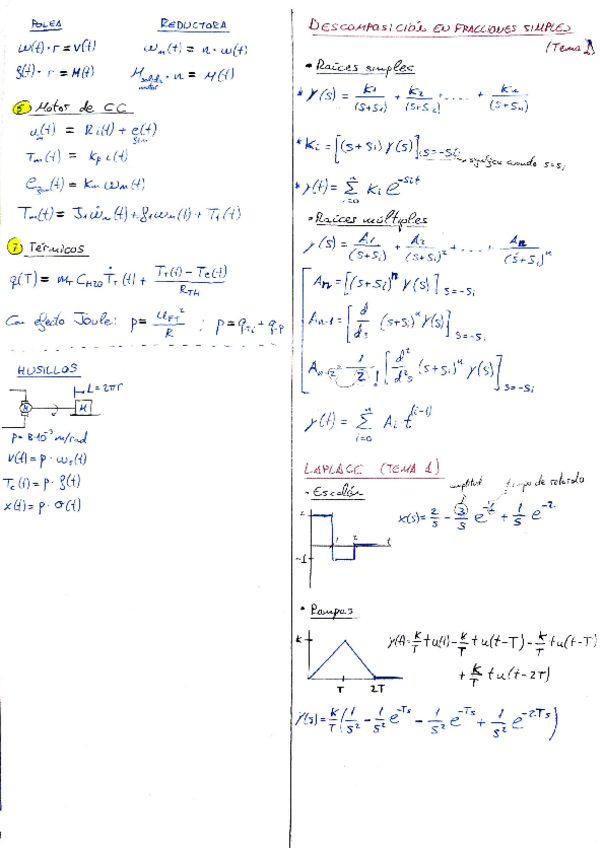 POLEA
ω(t)·r = v(t)
f(t)·r = M(t)
REDUCTORA
ωm(t) = n·ω(t)
M salida motor · n = M(t)
5 Motor de CC
um(t) = Ri(t) + e(t)
Tm(t) = kp i(t)
= km ωm(t)
Tm(t) = J1ω̇m(t) + f1ωm(t) + T1(t)
7 Térmicos
q(T) = mT CH2O ṪT(t) + (TT(t) - Te(t))/RTH
Con efecto Joule: p = u²/R ; p =
HUSILLOS
L = 2πr
M
p = 8·10⁻³ m/rad
v(t) = p·ωs(t)
Tc(t) = p·f(t)
x(t) = p·σ(t)
DESCOMPOSICIÓN EN FRACCIONES SIMPLES
(Tema 1)
• Raíces simples
* Y(s) = K1/(s+s1) + K2/(s+s2) + .... + Kn/(s+sn)
* Ki = [(s+si) Y(s)] s=-si → significa cuando s=si
* y(t) = Σ(i=0, n) Ki e^(-sit)
• Raíces múltiples
Y(s) = A1/(s+si) + A2/(s+si)² + ... + An/(s+si)ⁿ
An = [(s+si)ⁿ Y(s)] s=-si
An-1 = [d/ds (s+si)ⁿ Y(s)] s=-si
An-2 = 1/2! [d²/d²s (s+si)ⁿ Y(s)] s=-si
y(t) = Σ(i=0, n) Ai t^(i-1)
LAPLACE (TEMA 1)
• Escalón
amplitud
tiempo de retardo
2
1 2 t
-1
x(s) = 2/s - 3/s e^-1 + 1/s e^-2
• Rampas
K
T 2T
y(t) = K/T t u(t) - K/T t u(t-T) - K/T t u(t-T)
+ K/T t u(t-2T)
Y(s) = K/T (1/s² - 1/s² e^-Ts - 1/s² e^-Ts + 1/s² e^-2Ts)